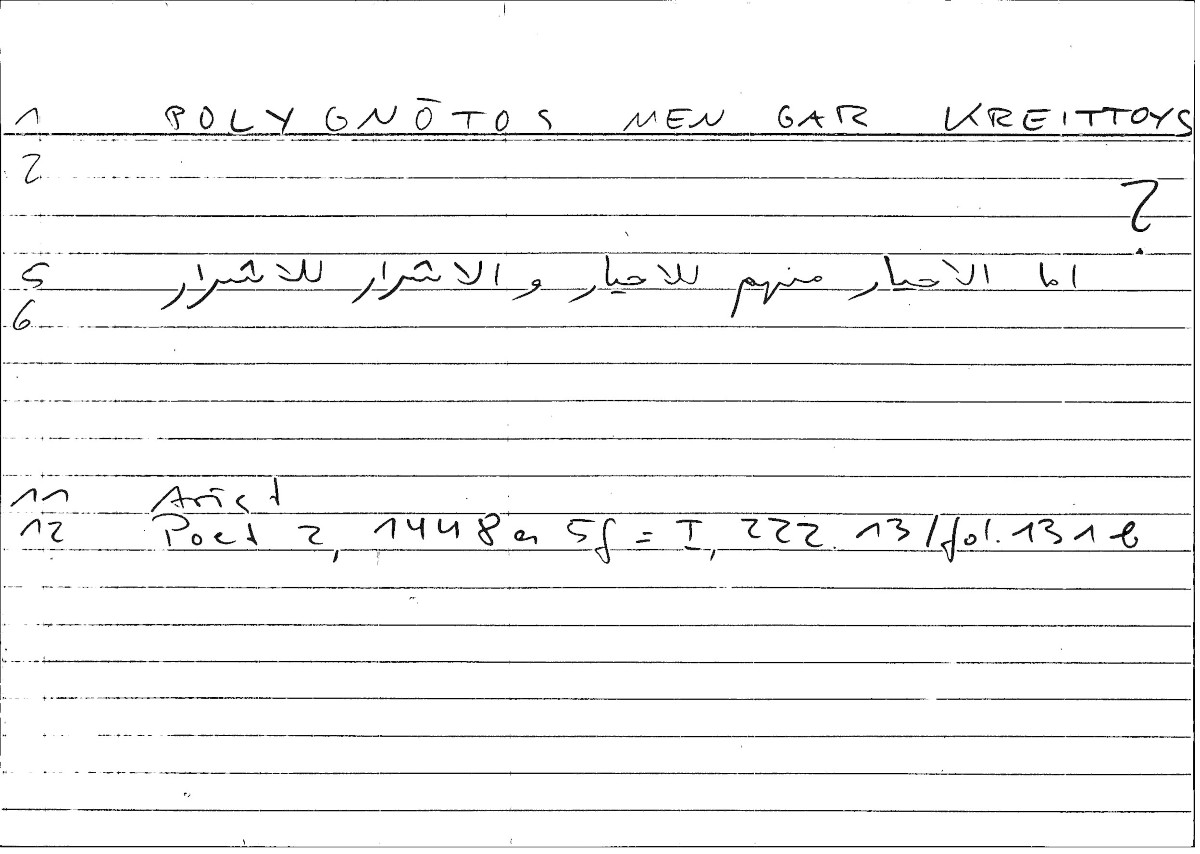 1 POLYGNŌTOS MEN GAR KREITTOYS
2
?
5 اما الاحيار منهم للاحيار و الاشرار للاشرار
6
11 Arist
12 Poet 2, 1448 a 5f = I, 222.13/fol. 131 b